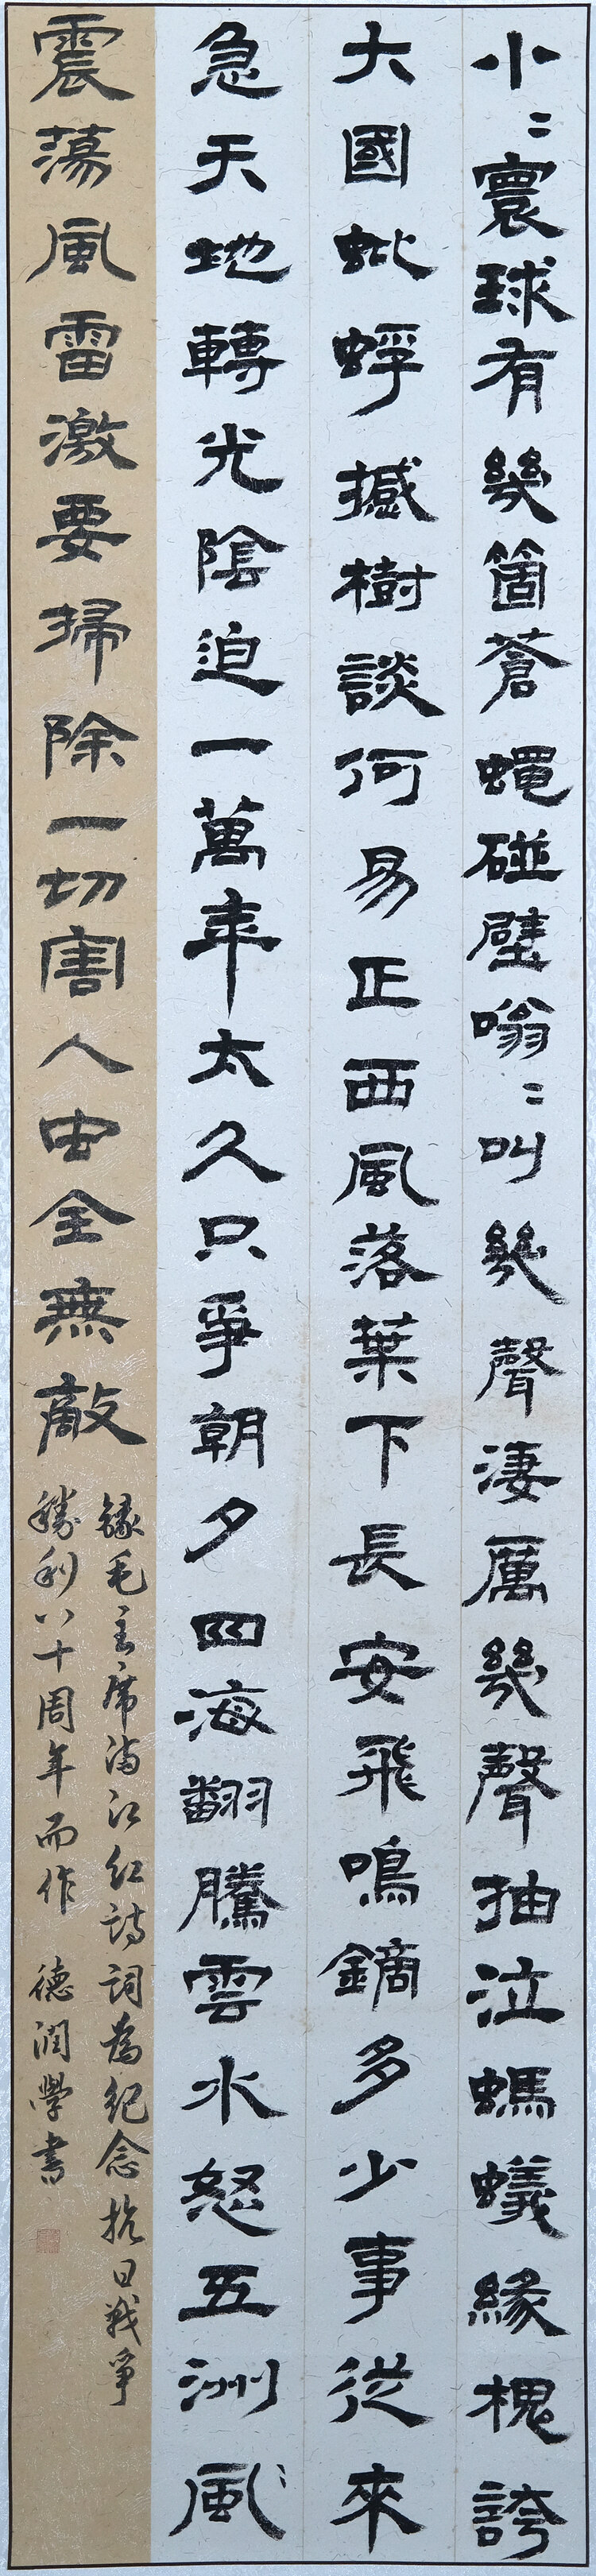 小〻寰球有幾箇蒼蠅碰壁嗡〻叫幾聲淒厲幾聲抽泣螞蟻緣槐誇
大國蚍蜉撼樹談何易正西風落葉下長安飛鳴鏑多少事從來
急天地轉光陰迫一萬年太久只爭朝夕四海翻騰雲水怒五洲風
震蕩風雷激要掃除一切害人虫全無敵
錄毛主席滿江紅詩詞為紀念抗日戰爭
勝利八十周年而作 德潤學書